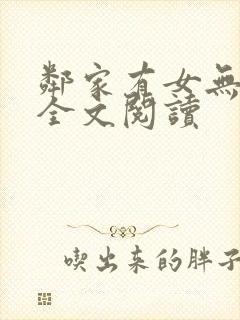 鄰家有女無
全文閱讀
喫出来的胖子